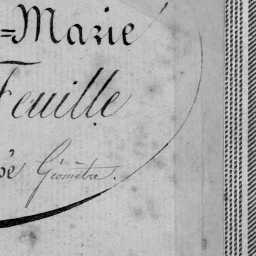 =Marie
Feuille
pé Géomètre.